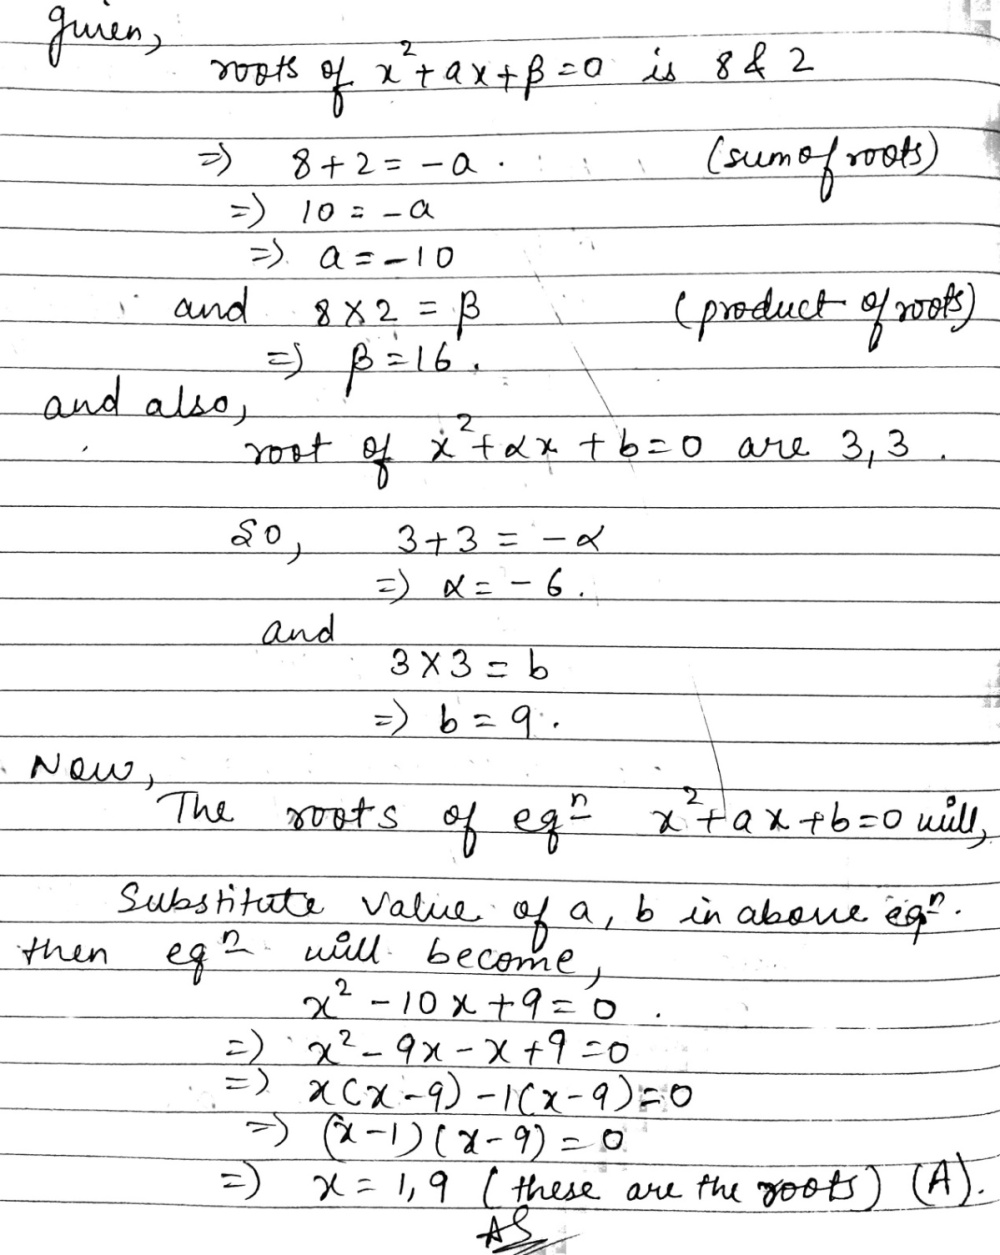 given,
roots of x²+ax+β=0 is 8 & 2
⇒ 8+2 = -a. (sum of roots)
⇒ 10 = -a
⇒ a = -10
and 8×2 = β (product of roots)
⇒ β = 16.
and also,
root of x²+αx+b=0 are 3,3.
So, 3+3 = -α
⇒ α = -6.
and
3×3 = b
⇒ b = 9.
Now,
The roots of eqⁿ x²+ax+b=0 will,
Substitute value of a, b in above eqⁿ.
then eqⁿ will become,
x² - 10x + 9 = 0.
⇒ x² - 9x - x + 9 = 0
⇒ x(x-9) - 1(x-9) = 0
⇒ (x-1)(x-9) = 0
⇒ x = 1, 9 (these are the roots) (A).